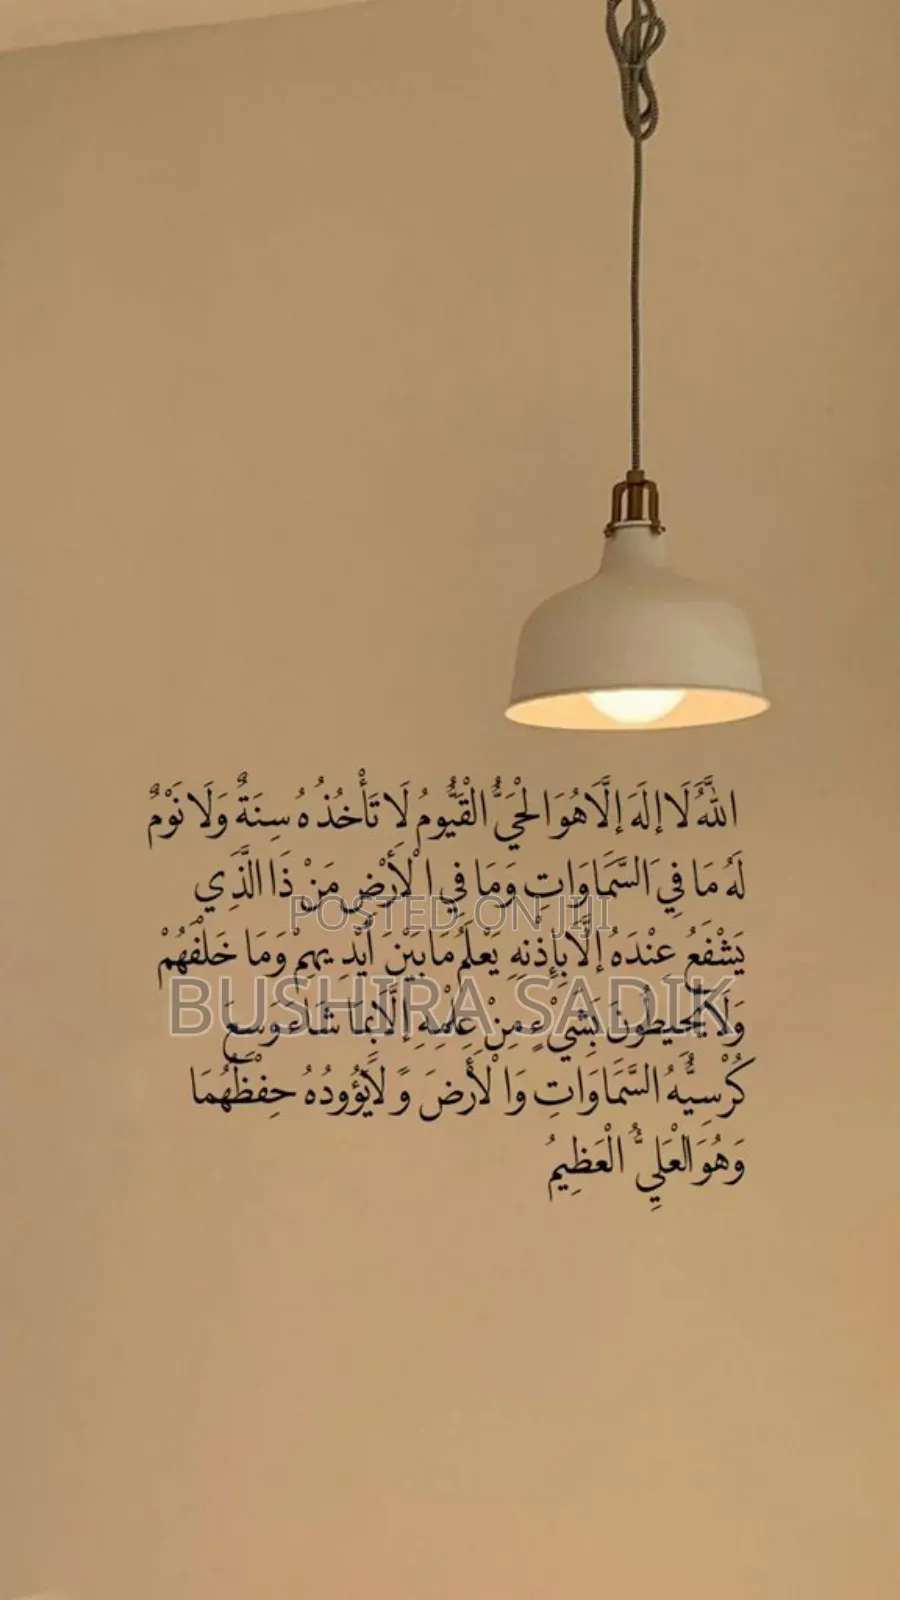 اللَّهُ لَا إِلَهَ إِلَّا هُوَ الْحَيُّ الْقَيُّومُ لَا تَأْخُذُهُ سِنَةٌ وَلَا نَوْمٌ
لَهُ مَا فِي السَّمَاوَاتِ وَمَا فِي الْأَرْضِ مَنْ ذَا الَّذِي
POSTED ON JIJI
يَشْفَعُ عِنْدَهُ إِلَّا بِإِذْنِهِ يَعْلَمُ مَا بَيْنَ أَيْدِيهِمْ وَمَا خَلْفَهُمْ
BUSHIRA SADIK
وَلَا يُحِيطُونَ بِشَيْءٍ مِنْ عِلْمِهِ إِلَّا بِمَا شَاءَ وَسِعَ
كُرْسِيُّهُ السَّمَاوَاتِ وَالْأَرْضَ وَلَا يَؤُودُهُ حِفْظُهُمَا
وَهُوَ الْعَلِيُّ الْعَظِيمُ